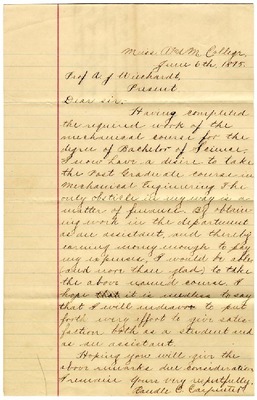 Miss. A & M College,
June 6th, 1895.
Prof. A. J. Wiechardt,
Present.
Dear Sir:
Having completed
the required work of the
mechanical course for the
degree of Bachelor of Science,
I now have a desire to take
the Post Graduate course in
Mechanical Engineering. The
only obstacle in my way is a
matter of finance. By obtain-
ing work in the department
as an assistant, and thereby
earning money enough to pay
my expenses, I would be able
(and more than glad) to take
the above named course. I
hope that it is needless to say
that I will endeavor to put
forth every effort to give satis-
faction both as a student and
as an assistant.
Hoping you will give the
above remarks due consideration
I remain Yours very respectfully,
Caudle C. Carpenter